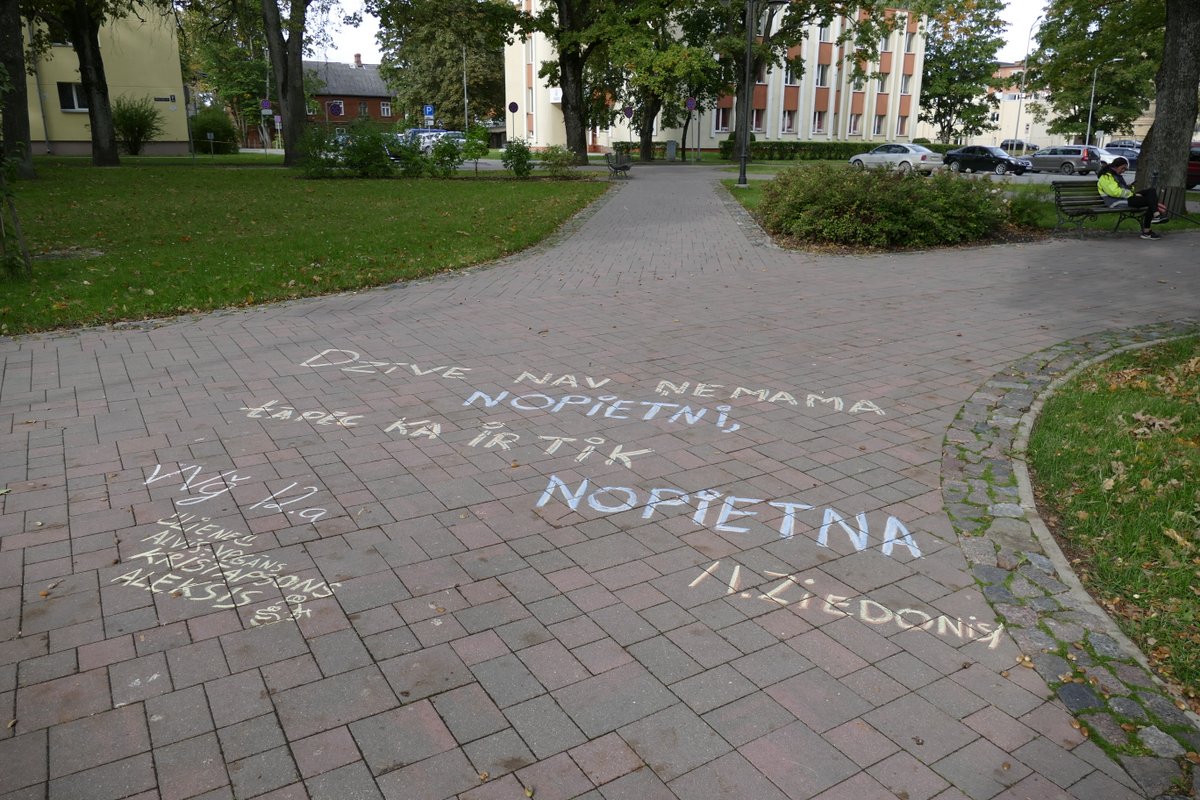 DZĪVE NAV NEMAMA
NOPIETNI,
tāpēc KA IR TIK
NOPIETNA
/I.ZIEDONIS/
VVģ 12.a
ALVIS
KRISTAPSONS
ALEKSIS